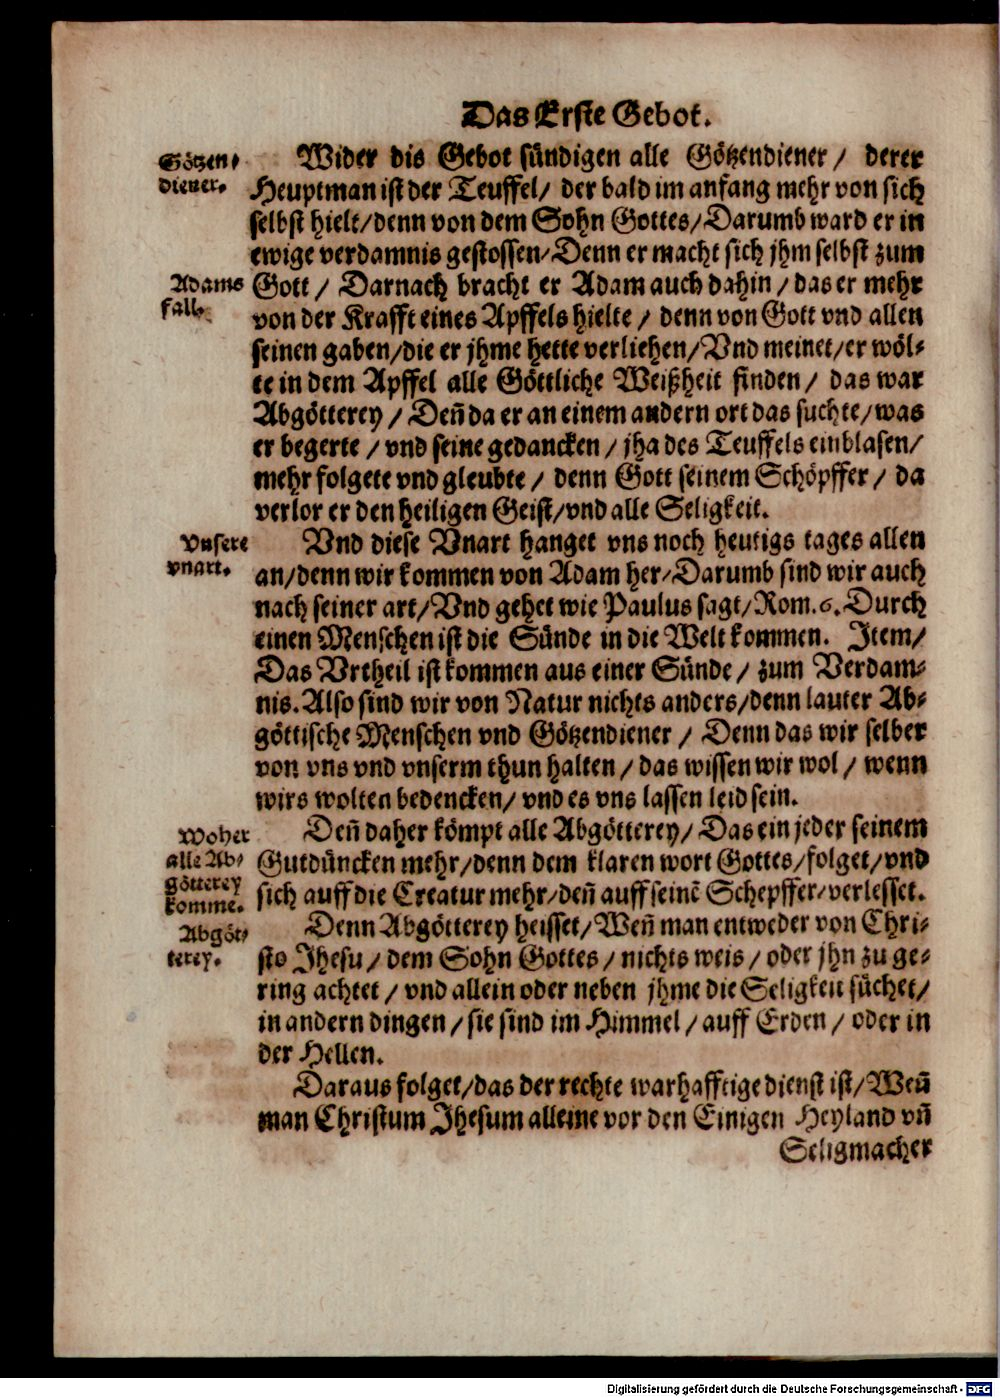 Das Erste Gebot.
Götzen-
diener.
Wider dis Gebot sündigen alle Götzendiener / derer
Heuptman ist der Teuffel / der bald im anfang mehr von sich
selbst hielt / denn von dem Sohn Gottes / Darumb ward er in
ewige verdamnis gestossen / Denn er macht sich jhm selbst zum
Adams
fall.
Gott / Darnach bracht er Adam auch dahin / das er mehr
von der Krafft eines Apffels hielte / denn von Gott vnd allen
seinen gaben / die er jhme hette verliehen / Vnd meinet / er wöl-
te in dem Apffel alle Göttliche Weißheit finden / das war
Abgötterey / Deñ da er an einem andern ort das suchte / was
er begerte / vnd seine gedancken / jha des Teuffels einblasen /
mehr folgete vnd gleubte / denn Gott seinem Schöpffer / da
verlor er den heiligen Geist / vnd alle Seligkeit.
Vnsere
vnart.
Vnd diese Vnart hanget vns noch heutigs tages allen
an / denn wir kommen von Adam her / Darumb sind wir auch
nach seiner art / Vnd gehet wie Paulus sagt / Rom. 6. Durch
einen Menschen ist die Sünde in die Welt kommen. Item /
Das Vrtheil ist kommen aus einer Sünde / zum Verdam-
nis. Also sind wir von Natur nichts anders / denn lauter Ab-
göttische Menschen vnd Götzendiener / Denn das wir selber
von vns vnd vnserm thun halten / das wissen wir wol / wenn
wirs wolten bedencken / vnd es vns lassen leid sein.
Woher
alle Ab-
götterey
komme.
Deñ daher kömpt alle Abgötterey / Das ein jeder seinem
Gutdüncken mehr / denn dem klaren wort Gottes / folget / vnd
sich auff die Creatur mehr / deñ auff seinē Schepffer / verlesset.
Abgöt-
terey.
Denn Abgötterey heisset / Weñ man entweder von Chri-
sto Jhesu / dem Sohn Gottes / nichts weis / oder jhn zu ge-
ring achtet / vnd allein oder neben jhme die Seligkeit süchet /
in andern dingen / sie sind im Himmel / auff Erden / oder in
der Hellen.
Daraus folget / das der rechte warhafftige dienst ist / Weñ
man Christum Jhesum alleine vor den Einigen Heyland vñ
Seligmacher
Digitalisierung gefördert durch die Deutsche Forschungsgemeinschaft - DFG